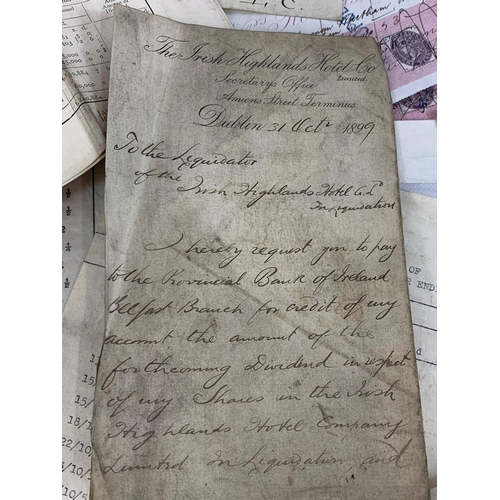 The Irish Highlands Hotel Co
Limited
Secretarys Office
Amiens Street Terminus
Dublin 31 Octr 1899
To the Liquidator
of the
Irish Highlands Hotel Co Ld
In Liquidation
I hereby request you to pay
to the Provincial Bank of Ireland
Belfast Branch for credit of my
account the amount of the
forthcoming Dividend in respect
of my Shares in the Irish
Highlands Hotel Company
Limited In Liquidation, and
OF
ENDI
15/
15/
18/10
22/10/